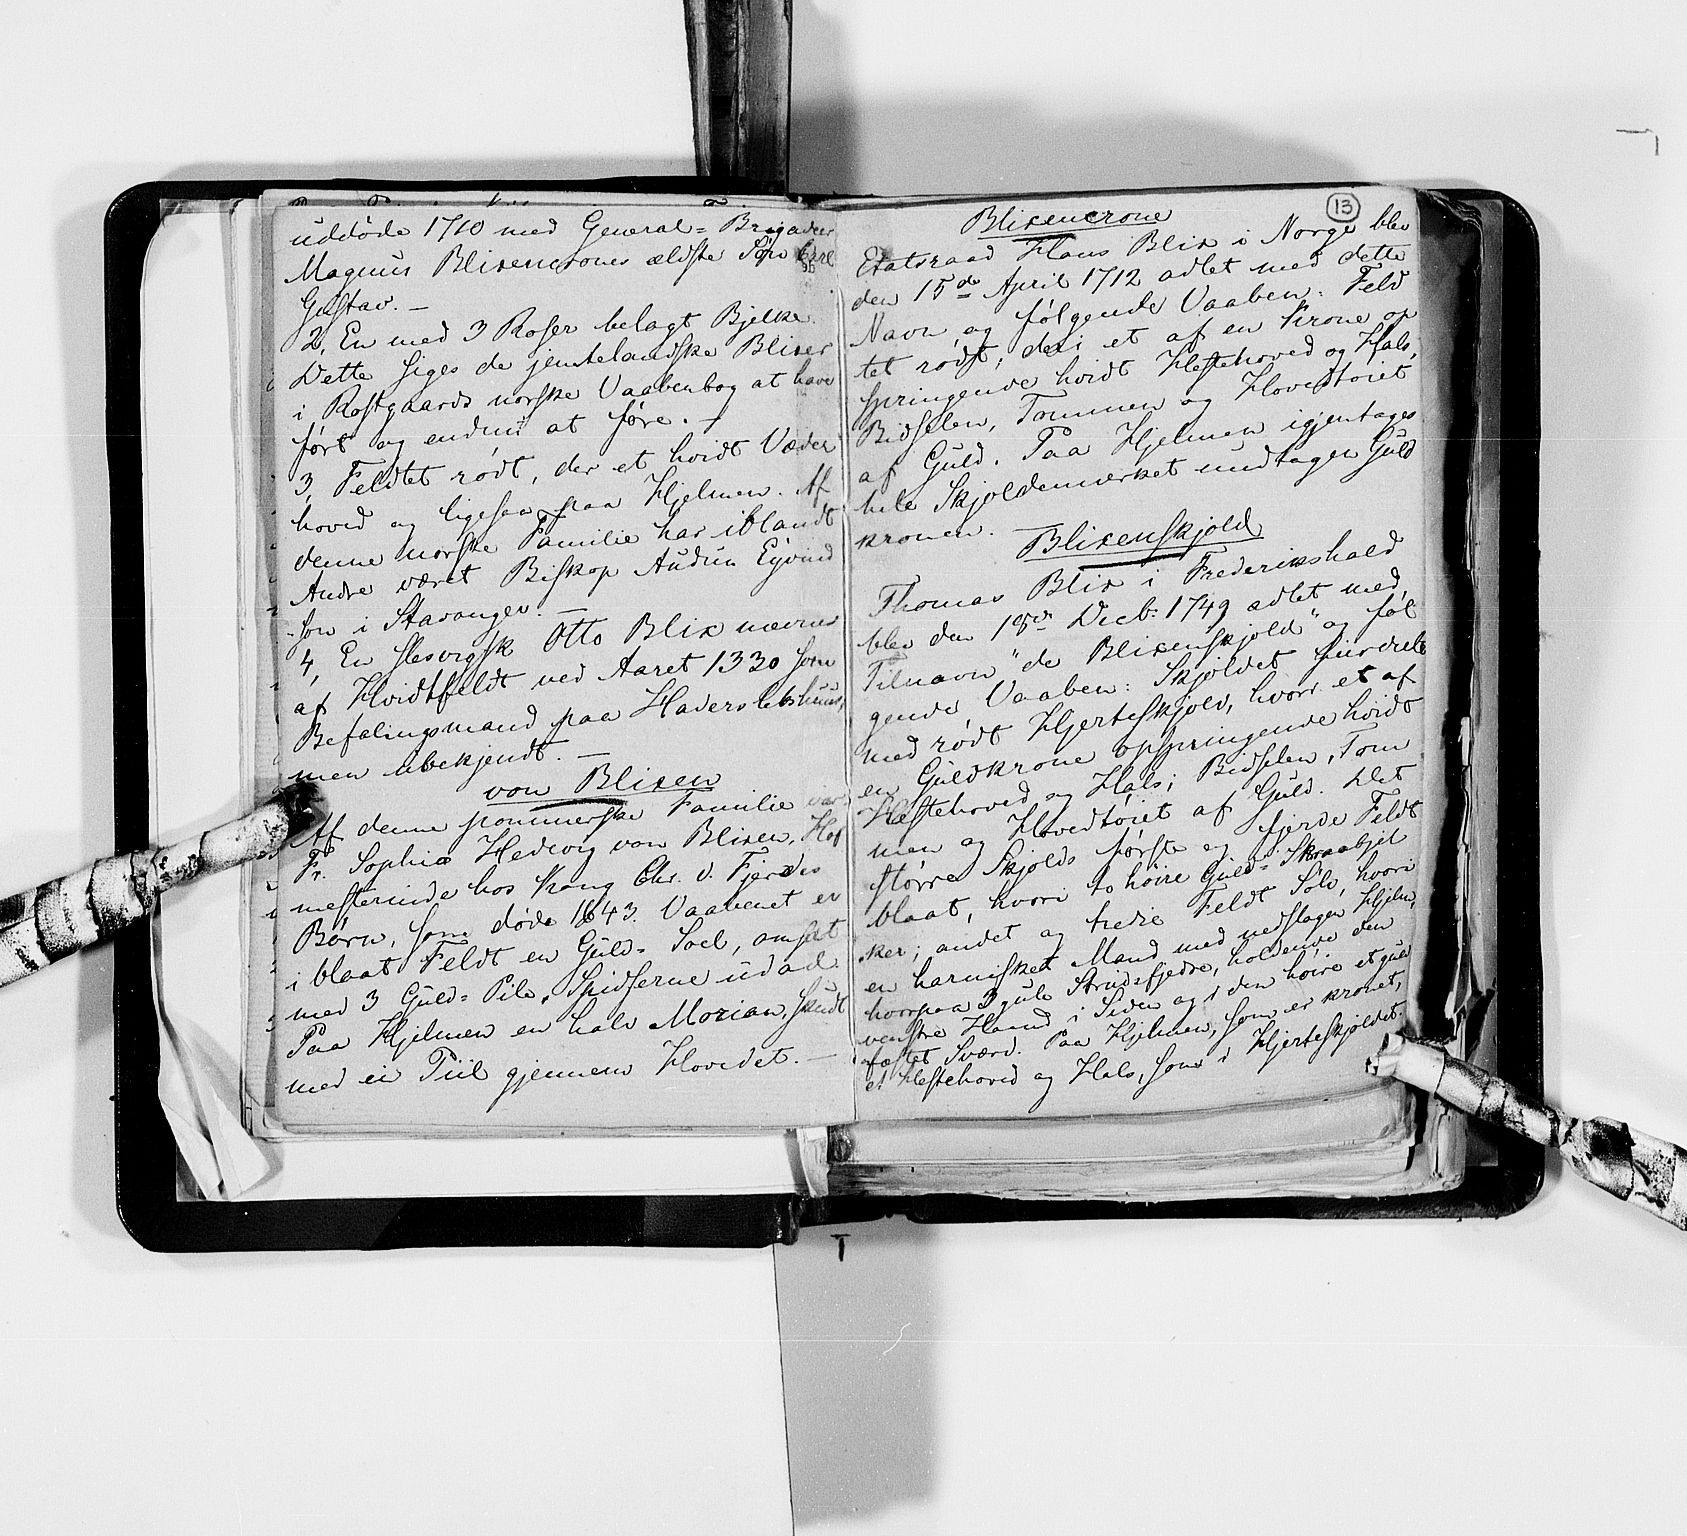 uddøde 1710 med General= Brigadeer
Magnus Blixencrones ældste Søn Carl
Gustav. —
2, En med 3 Roser belagt Bjelke.
Dette siges de jemtelandske Blixer
i Rostgaards norske Vaabenbog at have
ført og endnu at føre. —
3, Feldtet rødt, der et hvidt Væder
hoved og ligesaa paa Hjelmen. Af
denne norske Familie har iblandt
Andre været Biskop Audun Eyvind
søn i Stavanger. —
4, En slesvigsk Otto Blix nævnes
af Hvidtfeldt ved Aaret 1330 som
Befalingsmand paa Haderslebshuus,
men ubekjendt. —
von Blixen
Af denne pommerske Familie var
Fr. Sophia Hedevig von Blixen, Hof
mesterinde hos Kong Chr. d. Fjerdes
Børn, som døde 1643. Vaabenet er
i blaat Feldt en Guld= Soel, omsat
med 3 Guld= Pile, Spidserne udad.
Paa Hjelmen en halv Morian, skudt
med en Piil gjennem Hovedet. —
13
Blixencrone
Etatsraad Hans Blix i Norge blev
den 15de April 1712 adlet med dette
Navn og følgende Vaaben: Feld
tet rødt; deri et af en Krone op
springende hvidt Hestehoved og Hals,
Bidselen, Tømmen og Hovedtøiet
af Guld. Paa Hjelmen igjentages
hele Skjoldemerket undtagen Guld
kronen.
Blixenskjold
Thomas Blix i Frederikshald
blev den 18de Decb: 1749 adlet med
Tilnavn "de Blixenskjold" og føl
gende Vaaben: Skjoldet fiirdeelt
med rødt Hjerteskjold, hvori et af
en Guldkrone opspringende hvidt
Hestehoved og Hals; Bidselen, Tøm
men og Hovedtøiet af Guld. Det
større Skjolds første og fjerde Feldt
blaat, hvori to høire Guld= Skraabjel
ker; andet og tredie Feldt Sølv, hvori
en harnisket Mand med nedslagen Hjelm,
hvorpaa 3 gule Strudsfjedre, holdende den
venstre Haand i Siden og i den høire et guld
fæstet Sværd. Paa Hjelmen, som er kronet,
et Hestehoved og Hals, som i Hjerteskjoldet.